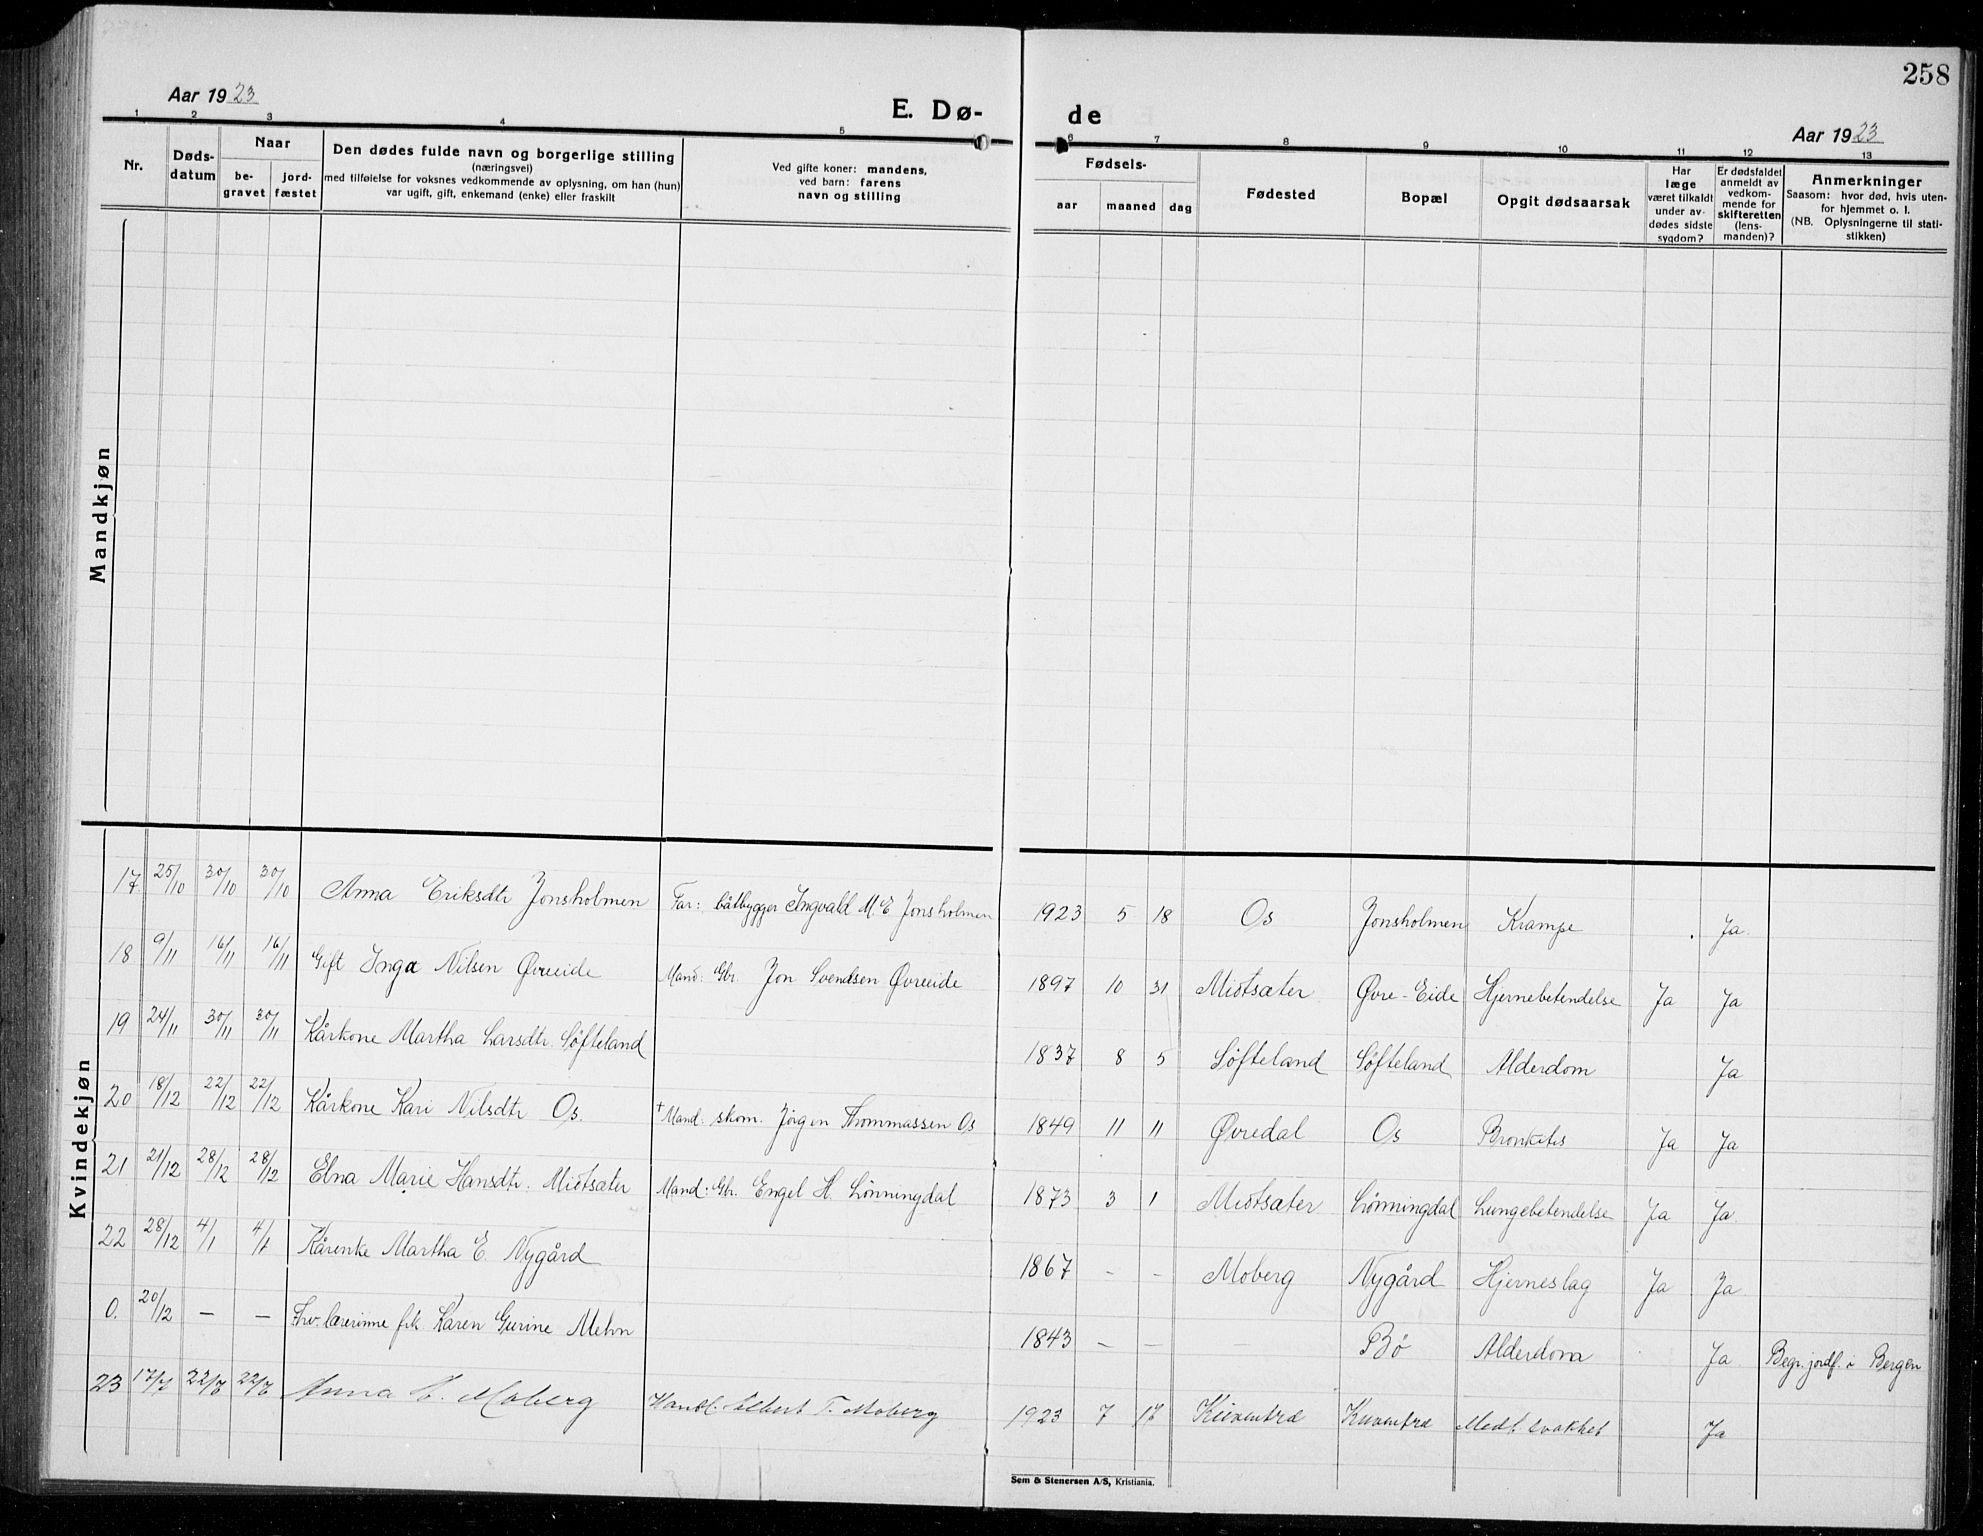 258
Aar 1923
E. Dø-
de
Aar 1923
1 2 3 4 5 6 7 8 9 10 11 12 13
Nr.
Døds-
datum
Naar
be-
gravet
jord-
fæstet
Den dødes fulde navn og borgerlige stilling
(næringsvei)
med tilføielse for voksnes vedkommende av oplysning, om han (hun)
var ugift, gift, enkemand (enke) eller fraskilt
Ved gifte koner: mandens,
ved barn: farens
navn og stilling
Fødsels-
aar
maaned
dag
Fødested
Bopæl
Opgit dødsaarsak
Har
læge
været tilkaldt
under av-
dødes sidste
sygdom?
Er dødsfaldet
anmeldt av
vedkom-
mende for
skifteretten
(lens-
manden)?
Anmerkninger
Saasom: hvor død, hvis uten-
for hjemmet o. l.
(NB. Oplysningerne til stati-
stikken)
Mandkjøn
Kvindekjøn
17 25/10 30/10 30/10 Anna Eriksdtr Jonsholmen Far: båtbygger Ingvald M. E Jonsholmen 1923 5 18 Os Jonsholmen Krampe Ja
18 9/11 16/11 16/11 Gift Inga Nilsen Øvreeide Mand: Gbr. Jon Svendsen Øvreeide 1897 10 31 Midtsæter Øvre-Eide Hjernebetendelse Ja Ja
19 24/11 30/11 30/11 Kårkone Martha Larsdtr. Søfteland 1837 8 5 Søfteland Søfteland Alderdom Ja
20 18/12 22/12 22/12 Kårkone Kari Nilsdtr Os. + Mand: skom. Jørgen Thommassen Os 1849 11 11 Øvredal Os Bronkitis Ja Ja
21 21/12 28/12 28/12 Elna Marie Hansdtr. Midtsæter Mand: Gbr. Engel H. Lønningdal 1873 3 1 Midtsæter Lønningdal Lungebetendelse Ja Ja
22 28/12 4/1 4/1 Kårenke Martha E. Nygård 1867 - - Moberg Nygård Hjerneslag Ja Ja
0. 20/12 - - Fhv. lærerinne frk Karen Gurine Mehn 1843 - - Bø Alderdom Ja Begr. jordf. i Bergen
23 17/7 22/7 22/7 Anna Moberg Albert T. Moberg 1923 7 17 Kuventræ Kuventræ Medf. svakhet Ja
Sem & Stenersen A/S, Kristiania.